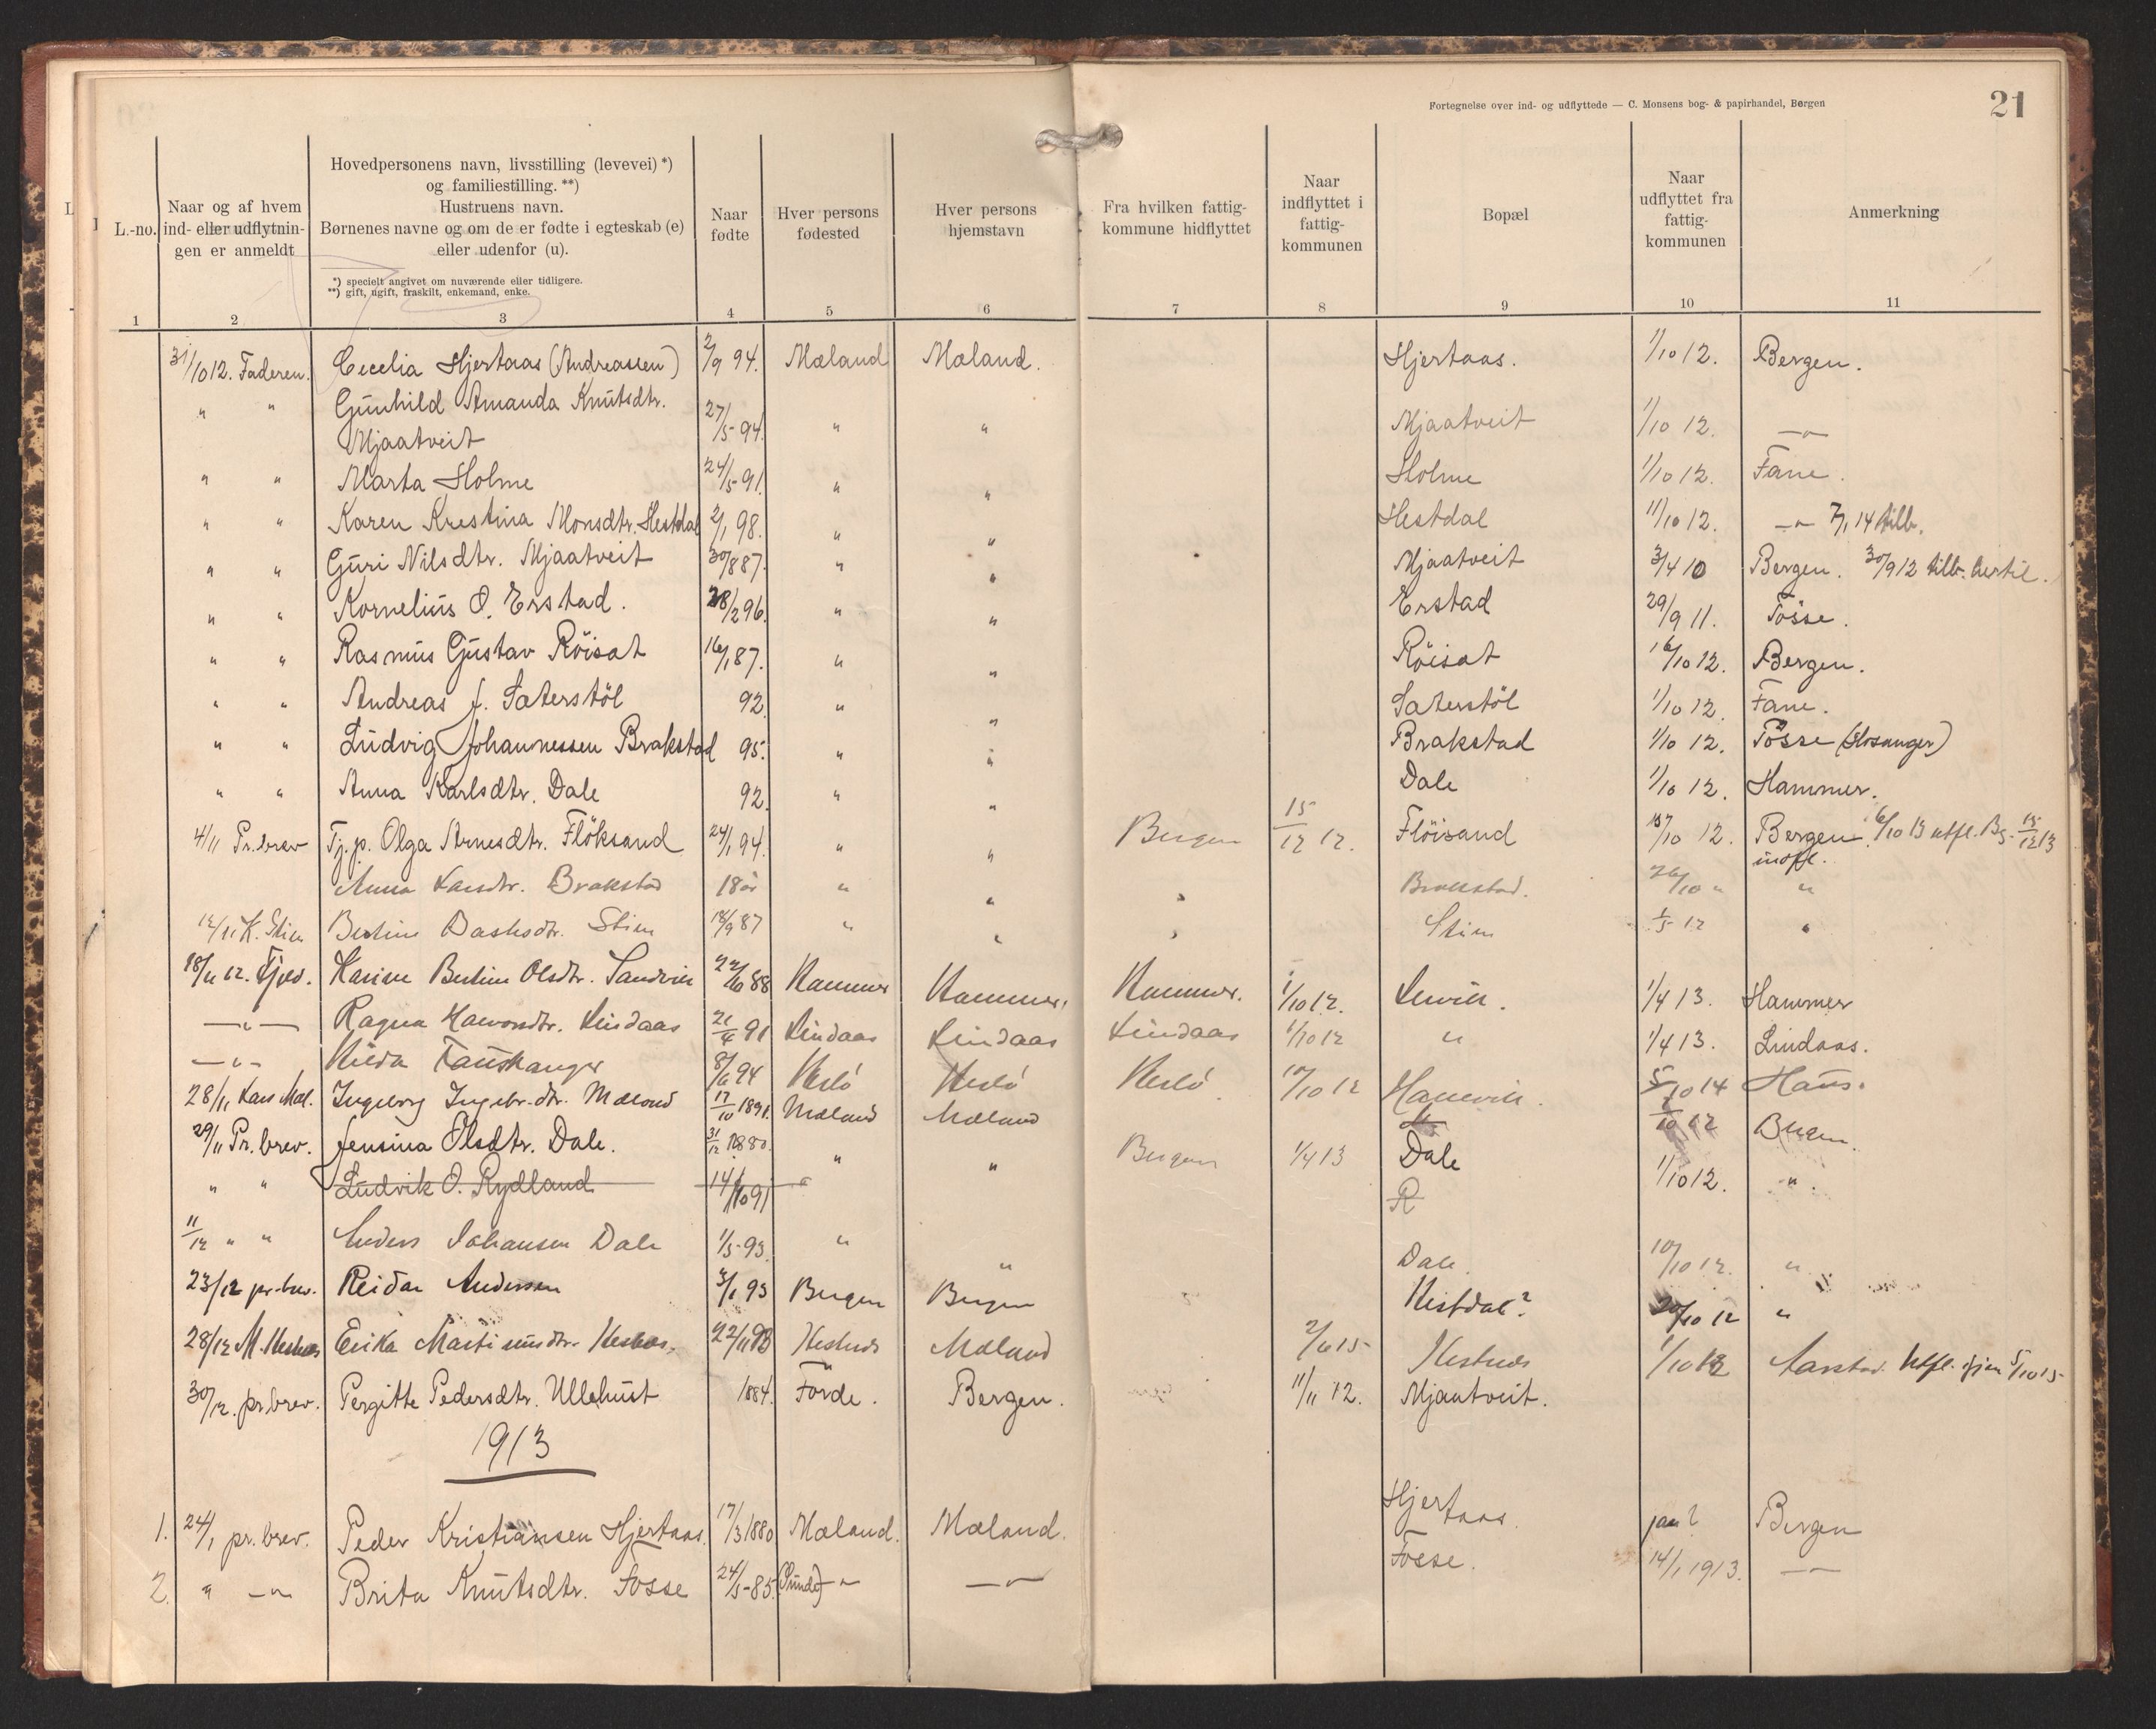 Fortegnelse over ind- og udflyttede — C. Monsens bog- & papirhandel, Bergen
21
L.-no.
Naar og af hvem
ind- eller udflytnin-
gen er anmeldt
Hovedpersonens navn, livsstilling (levevei) *)
og familiestilling. **)
Hustruens navn.
Børnenes navne og om de er fødte i egteskab (e)
eller udenfor (u).
*) specielt angivet om nuværende eller tidligere.
**) gift, ugift, fraskilt, enkemand, enke.
Naar
fødte
Hver persons
fødested
Hver persons
hjemstavn
Fra hvilken fattig-
kommune hidflyttet
Naar
indflyttet i
fattig-
kommunen
Bopæl
Naar
udflyttet fra
fattig-
kommunen
Anmerkning
1 2 3 4 5 6 7 8 9 10 11
31/10 12. Faderen. Cecelia Hjertaas (Andreassen) 2/9 94. Mæland Mæland. Hjertaas. 1/10 12. Bergen.
" " Gunhild Amanda Knutsdtr.
Mjaatveit 27/5-94. " " Mjaatveit 1/10 12. —"—
" " Marta Holme 24/5-91. " " Holme 1/10 12. Fane.
" " Karen Krestina Monsdtr. Hestdal 2/1 98. " " Hestdal 11/10 12. —"— 7/1 14 tilb.
" " Guri Nilsdtr. Mjaatveit 30/8 87. " " Mjaatveit 3/4 10 Bergen. 30/9 12 tilb. hertil.
" " Kornelius O. Erstad. 28/2 96. " " Erstad 29/9 11. Fosse.
" " Rasmus Gustav Röisat 16/1 87. " " Röisat 16/10 12. Bergen.
" " Andreas J. Saterstöl 92. " " Saterstöl 1/10 12. Fane.
" " Ludvig Johannessen Brakstad 95. " " Brakstad 1/10 12. Fosse (Hosanger)
" " Anna Karlsdtr. Dale 92. " " Dale 1/10 12. Hammer.
4/11 Pr. brev Tj. p. Olga Arnesdtr. Flöksand 24/1 94. " " Bergen 15/12 12. Flöisand 10 12. Bergen. 6/10 13 utfl. Bg. 15/12 13
indfl.
Anna Larsdtr. Brakstad 18 år " " " Brakstad. 26/10 " "
12/11 K. Stim Bertine Stim 18/9 87 " " " Stim 1/5 12 "
18/11 12. Karine Bertine Olsdtr. Sandvik 88 Hammer Hammer. Hammer. 1/10 12. Leivik. 1/4 13. Hammer
—"— Ragna Lindaas 21/4 91 Lindaas Lindaas Lindaas 1/10 12 " 1/4 13. Lindaas.
—"— Hilda Fauskanger 8/6 94 Herlö Herlö Herlö 10/10 12 Hanevik. 5/10 14 Haus.
28/11 Lars Mæl. Ingeborg Ingebr.dtr. Mæland 17/10 1891. Mæland Mæland M 10 12 Bergen
29/11 Pr. brev. Jensina Olsdtr. Dale. 31/12 1880. " " Bergen 1/4 13 Dale 1/10 12. "
" " Ludvik O. Rydland 14/10 91 " R
11/12 " " Anders Johansen Dale 1/5-93. " " Dale 10/10 12. "
23/12 pr. brev. Reidar Andersen 3/1 93 Bergen Bergen Hestdal? 20/10 12 "
28/12 M. Hestnes Erika Martinusdtr. Hestnes. 22/11 98 Hestnes Mæland 2/6 15 Hestnes 1/10 12 Aarstad. Utfl. igjen 5/10 15
30/12. pr. brev. Pergitte Pedersdtr. Ullehust 1884. Förde. Bergen. 11/11 12. Mjaatveit.
1913
1. 24/1 pr. brev. Peder Kristiansen Hjertaas. 17/3 1880 Mæland. Mæland. Hjertaas. jan? Bergen
2. " —"— Brita Knutsdtr. Fosse 24/5-85. —"— —"— Fosse. 14/1 1913. —"—